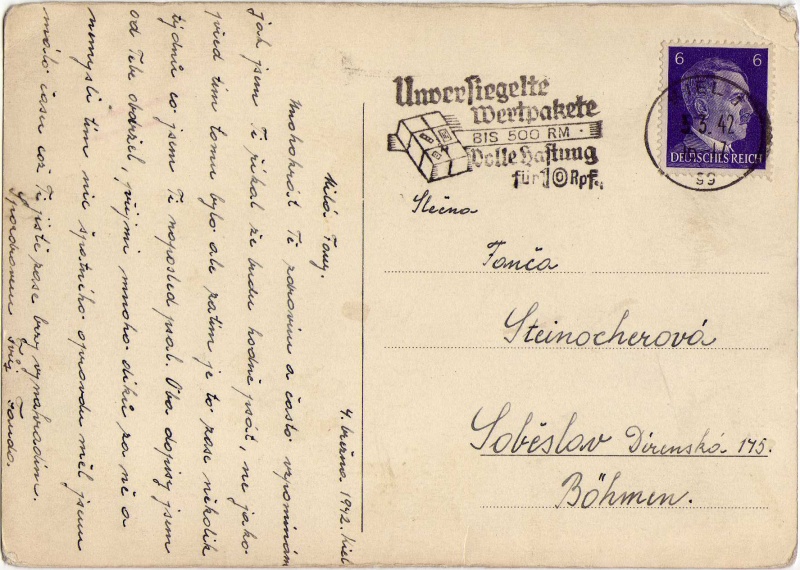 4. března 1942. Kiel
Milá Tany.
Mnohokrát Tě zdravím a často vzpomínám
jak jsem Ti říkal že budu hodně psát, ne jako
před tím tomu bylo ale zatím je to zase několik
týdnů co jsem Ti naposled psal. Oba dopisy jsem
od Tebe obdržel, přijmi mnoho díků za ně a
nemysli tím nic špatného opravdu měl jsem
málo času což Ti jistě zase brzy vynahradím.
S pozdravem Tvůj Fanda.
Unversiegelte
Wertpakete
BIS 500 RM
Volle Haftung
für 10 Rpf.
6 6
DEUTSCHES REICH
KIEL
3. 42
gg
Slečna
Fanča
Steinocherová
Soběslav Dírenská 175.
Böhmen.